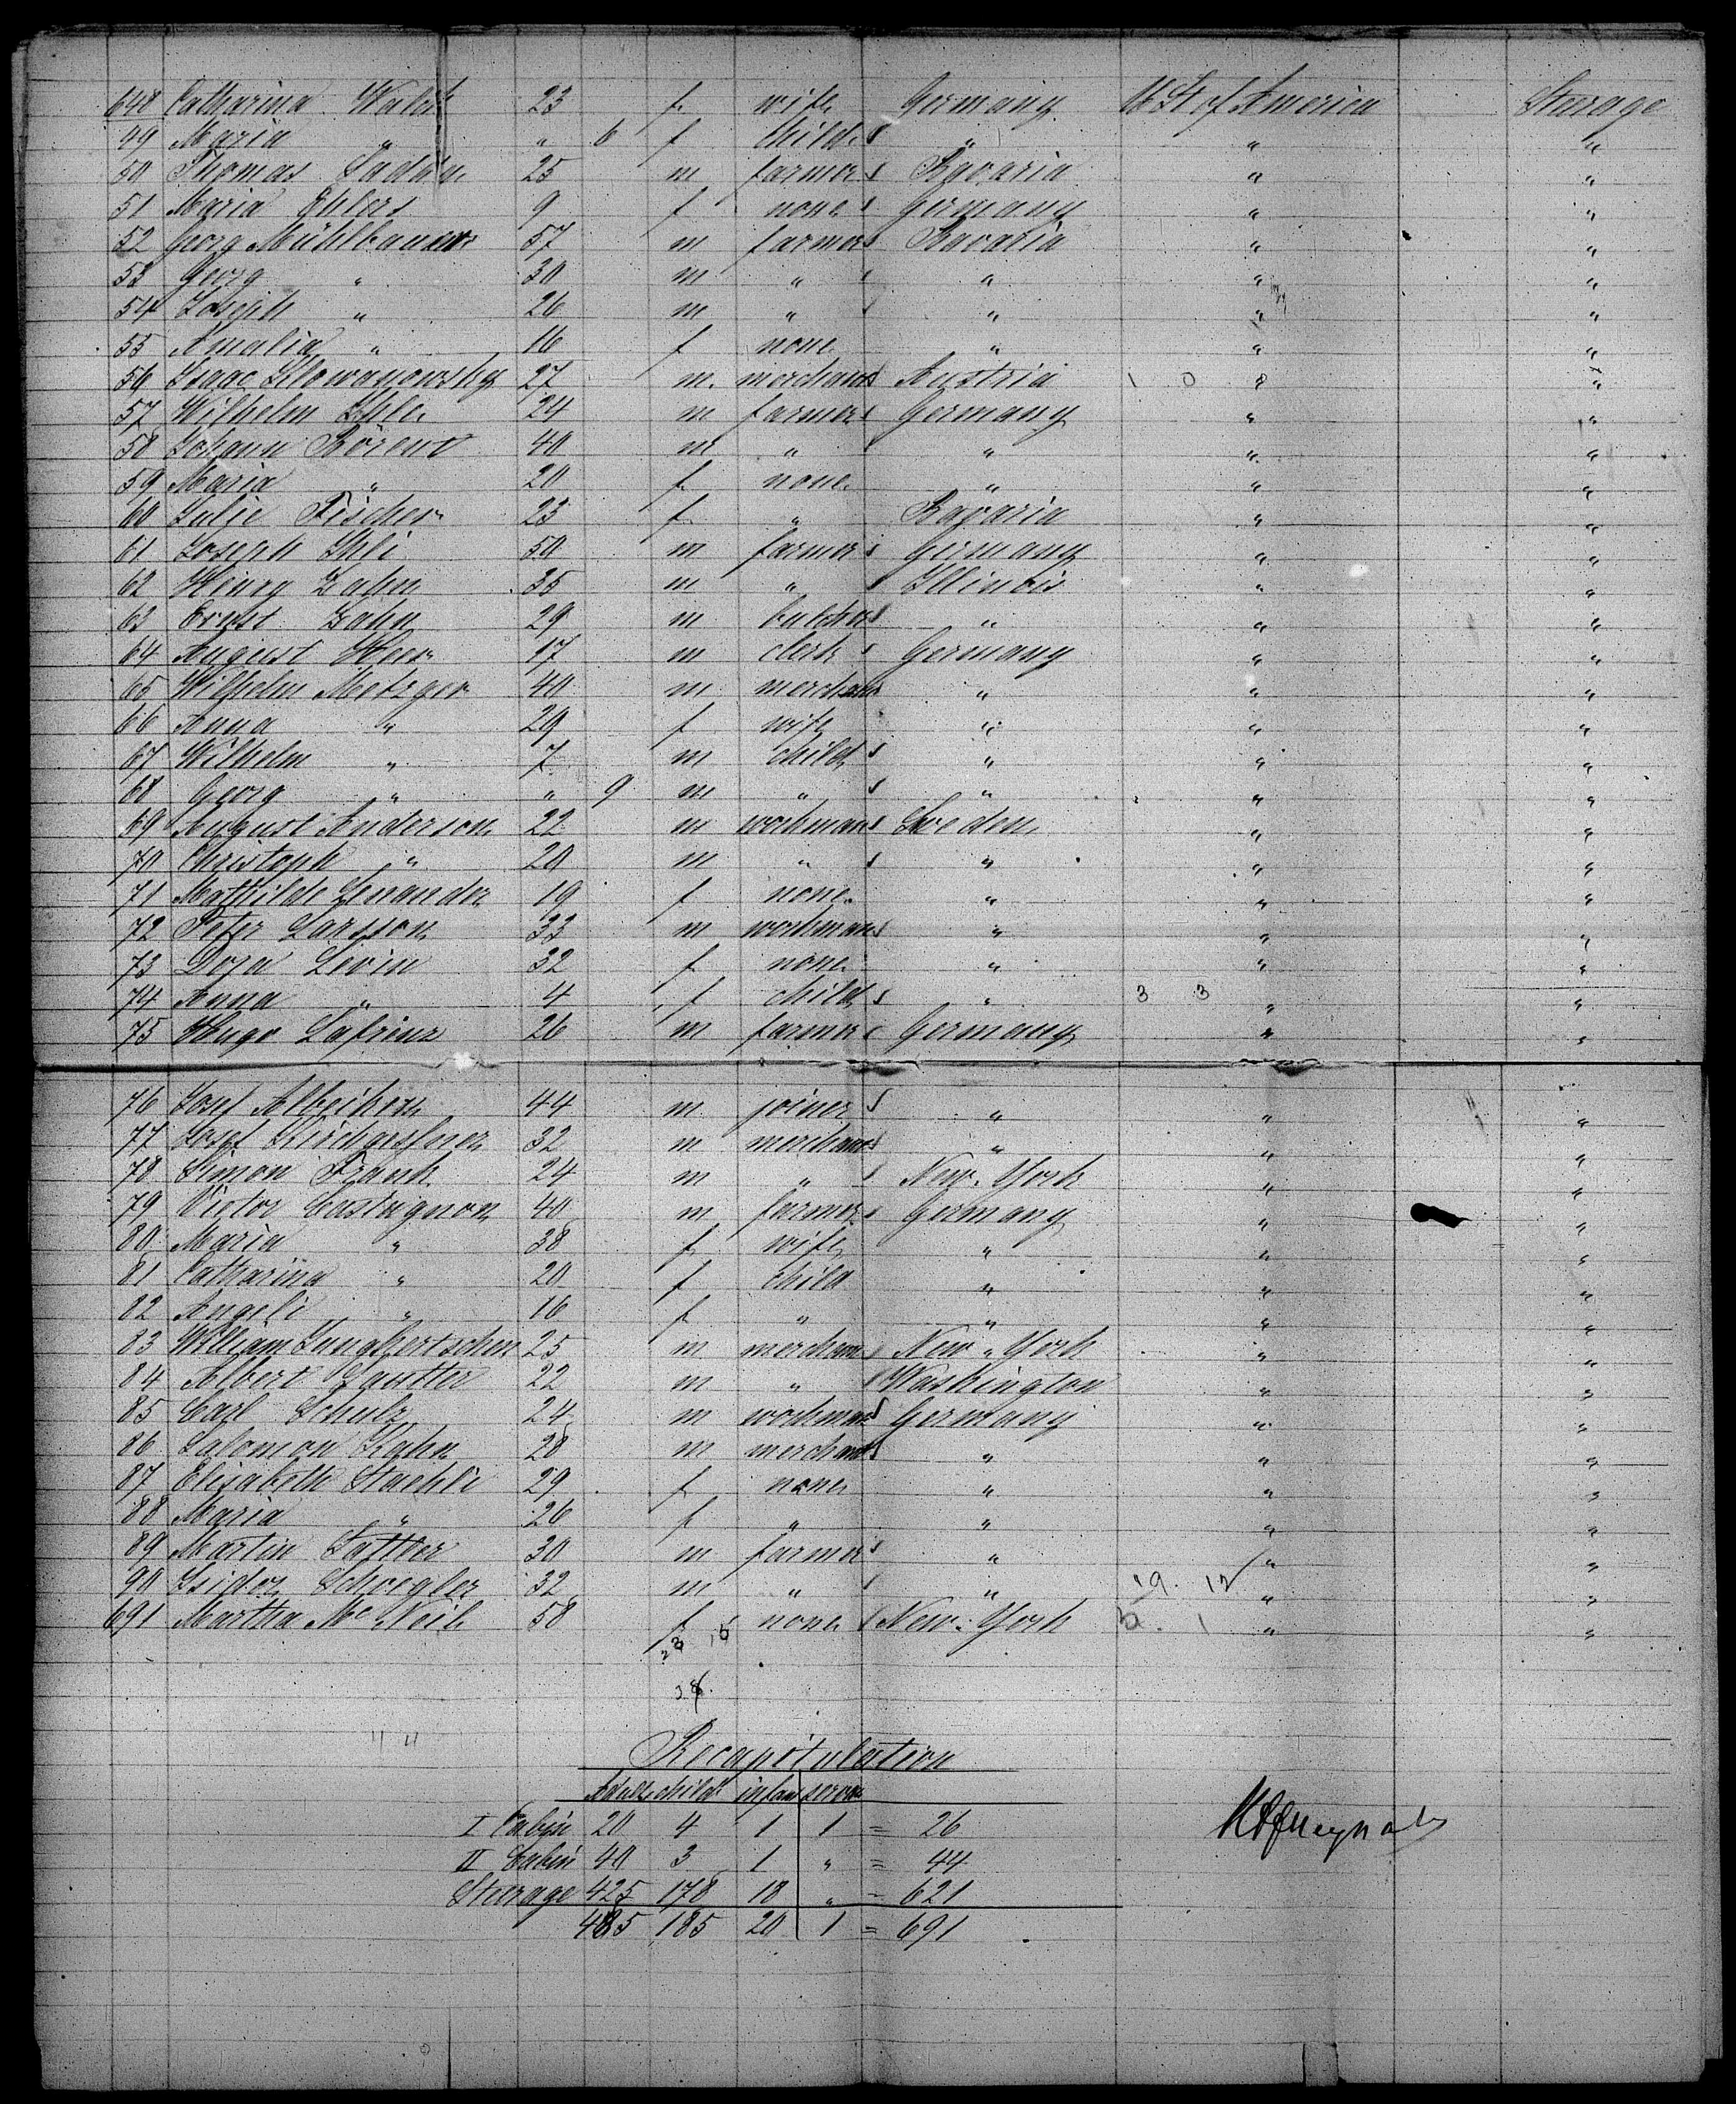 648 Catharina Walch 23 f wife Germany U St of America Steerage
49 Maria " " 6 f child " " "
50 Thomas 25 m farmer Bavaria " "
51 Maria Ehlers 9 f none Germany " "
52 Georg Mühlbauer 57 m farmer Bavaria " "
53 Georg " 30 m " " " "
54 Joseph " 26 m " " " "
55 Amalia " 16 f none " " "
56 Isaac 27 m. merchant Austria 1 0 " "
57 Wilhelm 24 m farmer Germany " "
58 Johann Börent 40 m " " " "
59 Maria " 20 f none " " "
60 Julie Fischer 23 f " Bavaria " "
61 Joseph Ihli 50 m farmer Germany " "
62 Henry Zahn 35 m " Illinois " "
63 Ernst Zahn 29 m butcher " " "
64 August Heer 17 m clerk Germany " "
65 Wilhelm Metzger 40 m merchant " " "
66 Anna " 29 f wife " " "
67 Wilhelm " 7 m child " " "
68 Georg " " 9 m " " " "
69 August Anderson 22 m workman Sweden " "
70 Christoph " 20 m " " " "
71 Mathilde Lenander 19 f none " " "
72 Peter Larsson 33 m workman " " "
73 Levin 32 f none " " "
74 Anna " 4 f child " 3 3 " "
75 Hugo Lafrenz 26 m farmer Germany " "
76 Josef 44 m joiner " " "
77 Josef 32 m merchant " " "
78 Simon Frank 24 m " New-York " "
79 Victor Castagnon 40 m farmer Germany " "
80 Maria " 38 f wife " " "
81 Catharina " 20 f child " " "
82 Angeli " 16 f " " " "
83 William 25 m merchant New-York " "
84 Albert Sautter 22 m " Washington " "
85 Carl Schulz 24 m workman Germany " "
86 Salomon Kahn 28 m merchant " " "
87 Elisabeth Staehli 29 f none " " "
88 Maria " 26 f " " " "
89 Martin Sattler 30 m farmer " " "
90 Isidor Schwegler 32 m " " 19. 12 " "
691 Martha Mc Neil 58 f none New-York 1 " "
Recapitulation
Adults child infan servan
I Cabin 20 4 1 1 = 26
II Cabin 40 3 1 " = 44
Steerage 425 178 18 " = 621
485 185 20 1 = 691